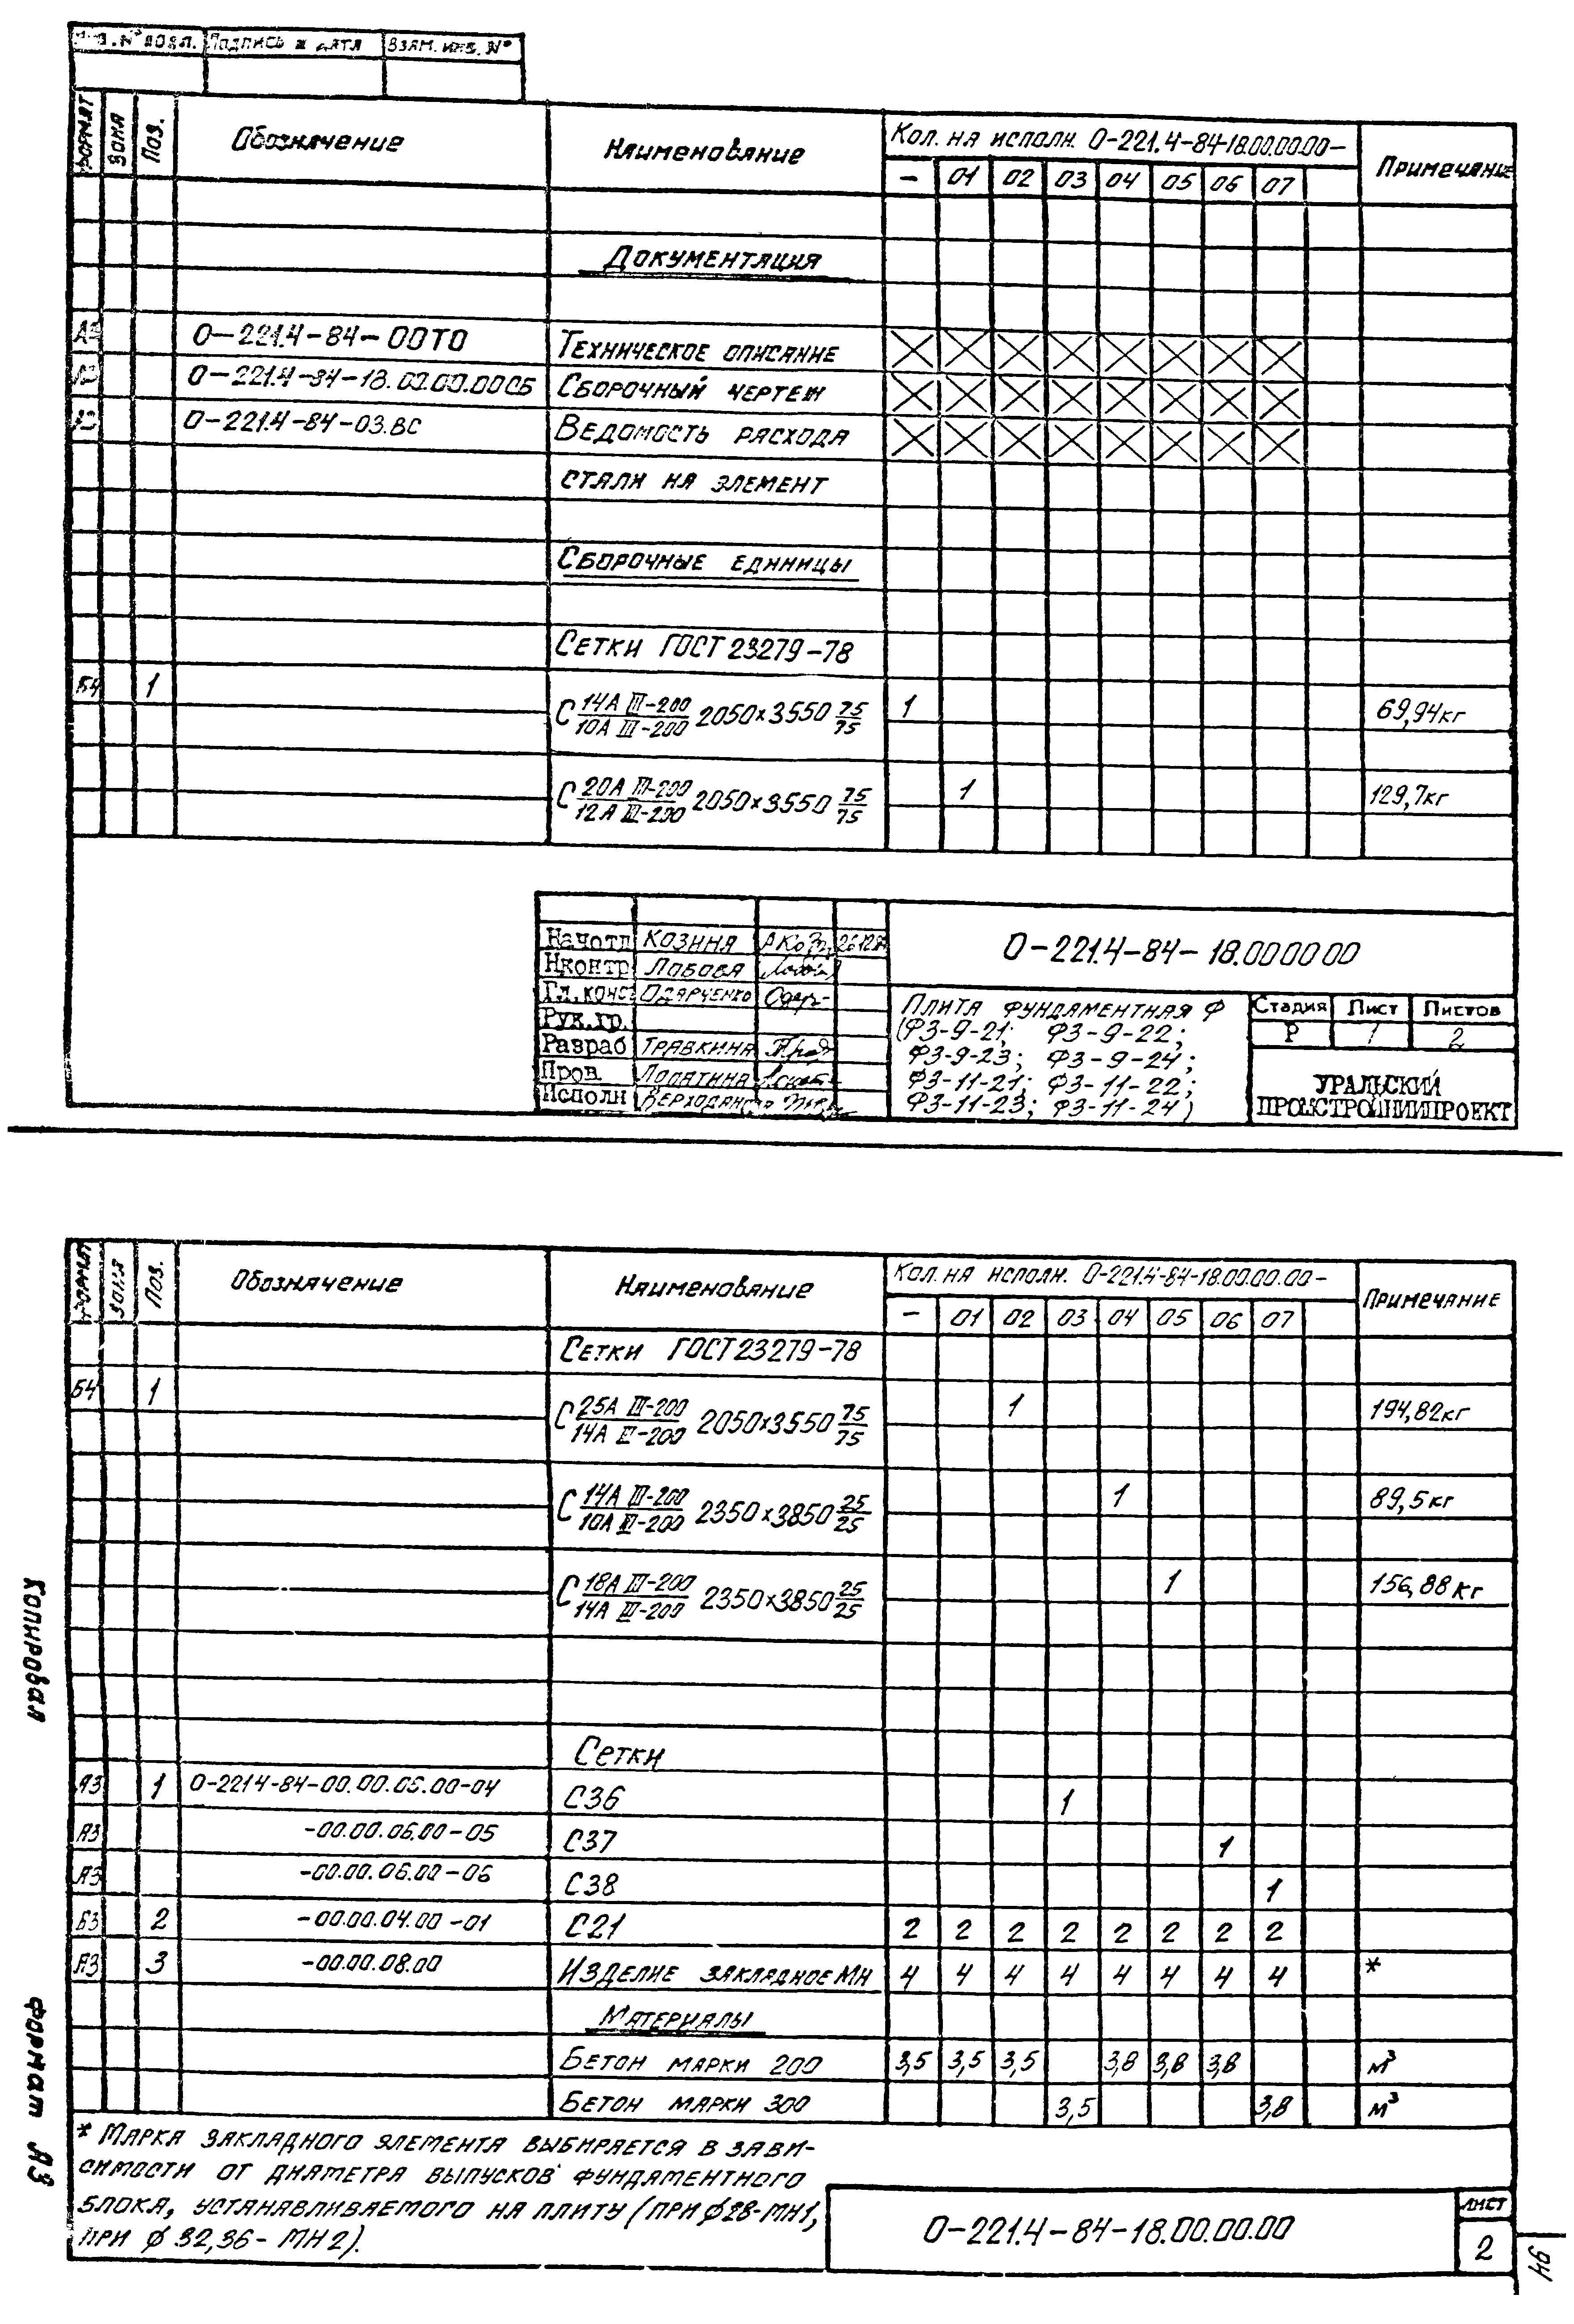 Инв. № подл. Подпись и дата Взам. инв. №
Формат Зона Поз. Обозначение Наименование Кол. на исполн. 0-221.4-84-18.00.00.00- Примечание
- 01 02 03 04 05 06 07
Документация
0-221.4-84-00ТО Техническое описание
А3 0-221.4-84-18.00.00.00СБ Сборочный чертеж
А3 0-221.4-84-03.ВС Ведомость расхода
стали на элемент
Сборочные единицы
Сетки ГОСТ 23279-78
Б4 1 С 14А III-200/10А III-200 2050×3550 75/75 1 69,94кг
С 20А III-200/12А III-200 2050×3550 75/75 1 129,7кг
Нач отд Козина 26.12.84
Н контр Лобова
Гл. конс Одярченко
Рук. гр.
Разраб Травкина
Пров. Лопатина
Исполн
0-221.4-84-18.00.00.00
Плита фундаментная Ф
(Ф3-9-21; Ф3-9-22;
Ф3-9-23; Ф3-9-24;
Ф3-11-21; Ф3-11-22;
Ф3-11-23; Ф3-11-24)
Стадия Лист Листов
Р 1 2
УРАЛЬСКИЙ
ПРОМСТРОЙНИИПРОЕКТ
Формат Зона Поз. Обозначение Наименование Кол. на исполн. 0-221.4-84-18.00.00.00- Примечание
- 01 02 03 04 05 06 07
Сетки ГОСТ 23279-78
Б4 1 С 25А III-200/14А III-200 2050×3550 75/75 1 194,82кг
С 14А III-200/10А III-200 2350×3850 25/25 1 89,5кг
С 18А III-200/14А III-200 2350×3850 25/25 1 156,88кг
Сетки
А3 1 0-221.4-84-00.00.06.00-04 С36 1
А3 -00.00.06.00-05 С37 1
А3 -00.00.06.00-06 С38 1
Б3 2 -00.00.04.00-01 С21 2 2 2 2 2 2 2 2
А3 3 -00.00.08.00 Изделие закладное МН 4 4 4 4 4 4 4 4 *
Материалы
Бетон марки 200 3,5 3,5 3,5 3,8 3,8 3,8 м³
Бетон марки 300 3,5 3,8 м³
* Марка закладного элемента выбирается в зави-
симости от диаметра выпусков фундаментного
блока, устанавливаемого на плиту (при ϕ28-МН1,
при ϕ 32,36- МН2).
0-221.4-84-18.00.00.00
Лист
2
94
Копировал
Формат А3